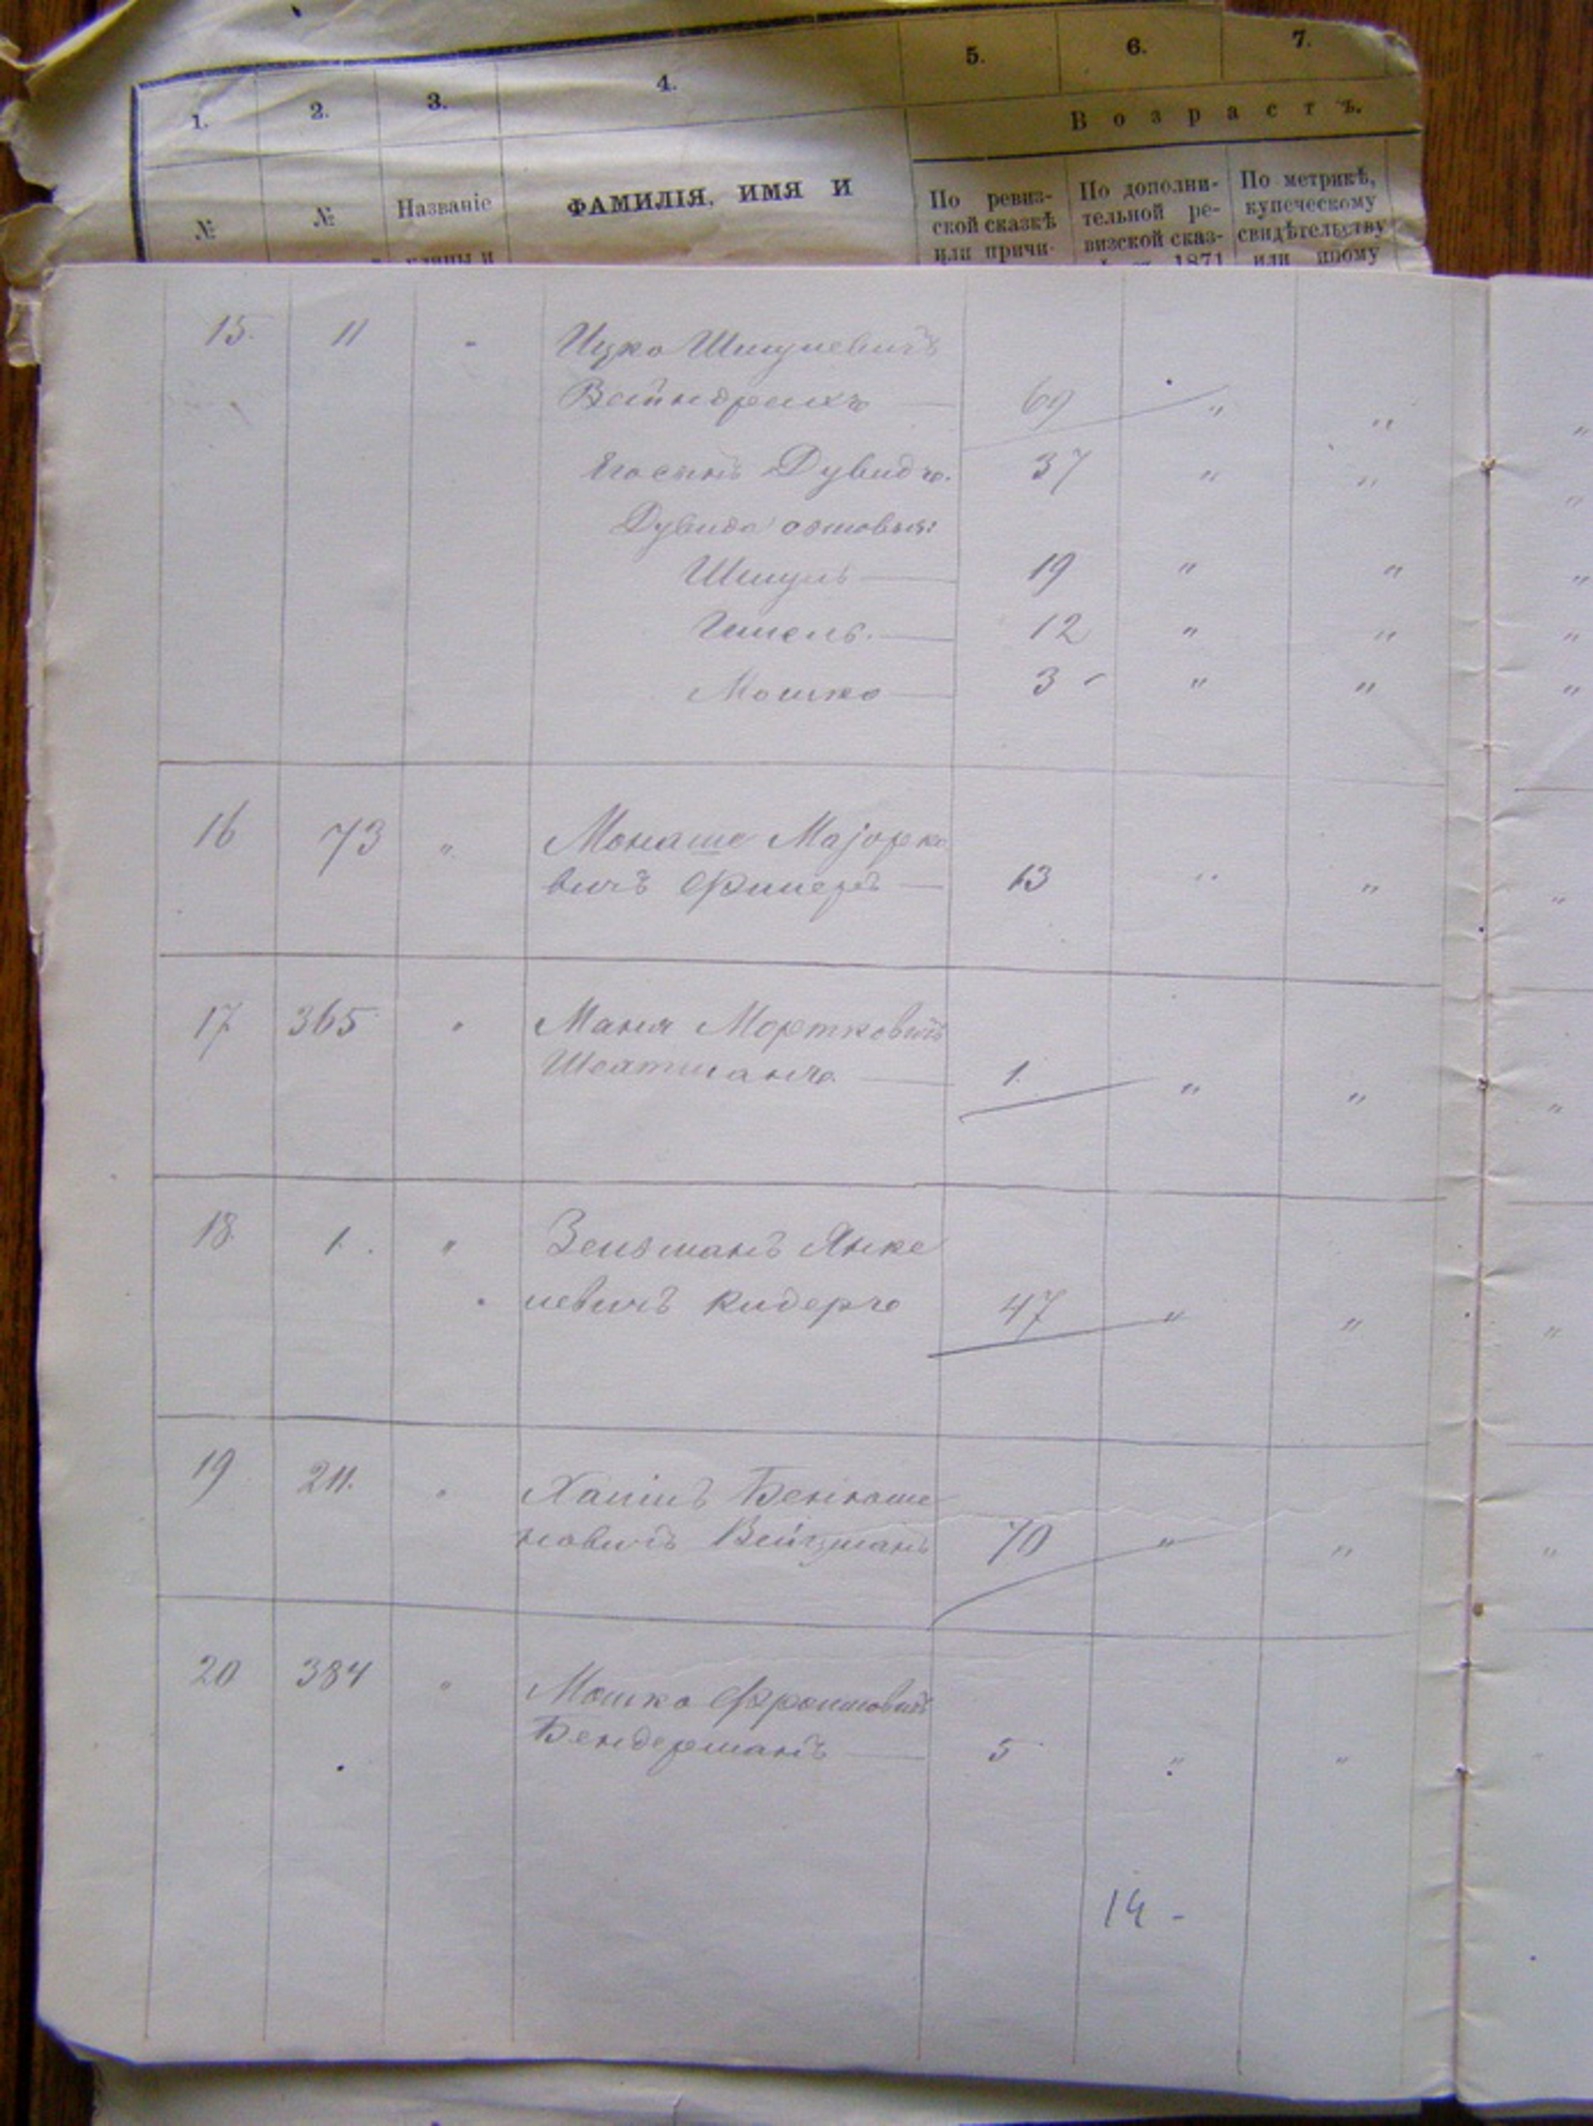 1. 2. 3. 4. 5. 6. 7.
Возрастъ.
№ № Названіе ФАМИЛІЯ, ИМЯ И
По ревиз-
ской сказкѣ
или причи-
По дополни-
тельной ре-
визской сказ-
1871
По метрикѣ,
купеческому
свидѣтельству
или иному
15. 11 - Ицко Шмулевичъ
Вайндрихъ — 69 " "
Его сынъ Дувидъ. 37 " "
Дувида сыновья:
Шмуль — 19 " "
Ишель. — 12 " "
Мошко — 3 " "
16 73 " Монаше Маjорко
вичъ Фишеръ — 13 " "
17 365 " Маня Мортковичъ
Шехтманъ — 1. " "
18 1. " Зельманъ Янке
левичъ Кидеръ 47 " "
19 211. " Хаимъ Беніоми
новичъ Вейцманъ 70 " "
20 384 " Мошко Фроимовичъ
Бендерманъ — 5 " "
14 -